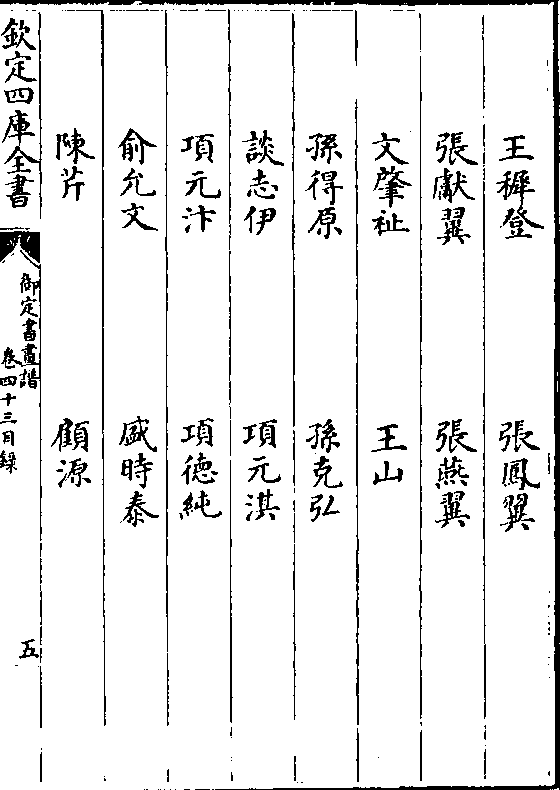 王穉登 張鳳翼
張獻翼 張燕翼
文肇祉 王山
孫得原 孫克弘
談志伊 項元淇
項元汴 項德純
俞允文 盛時泰
陳芹 顧源
欽定四庫全書 御定書畫譜 卷四十三目錄 五